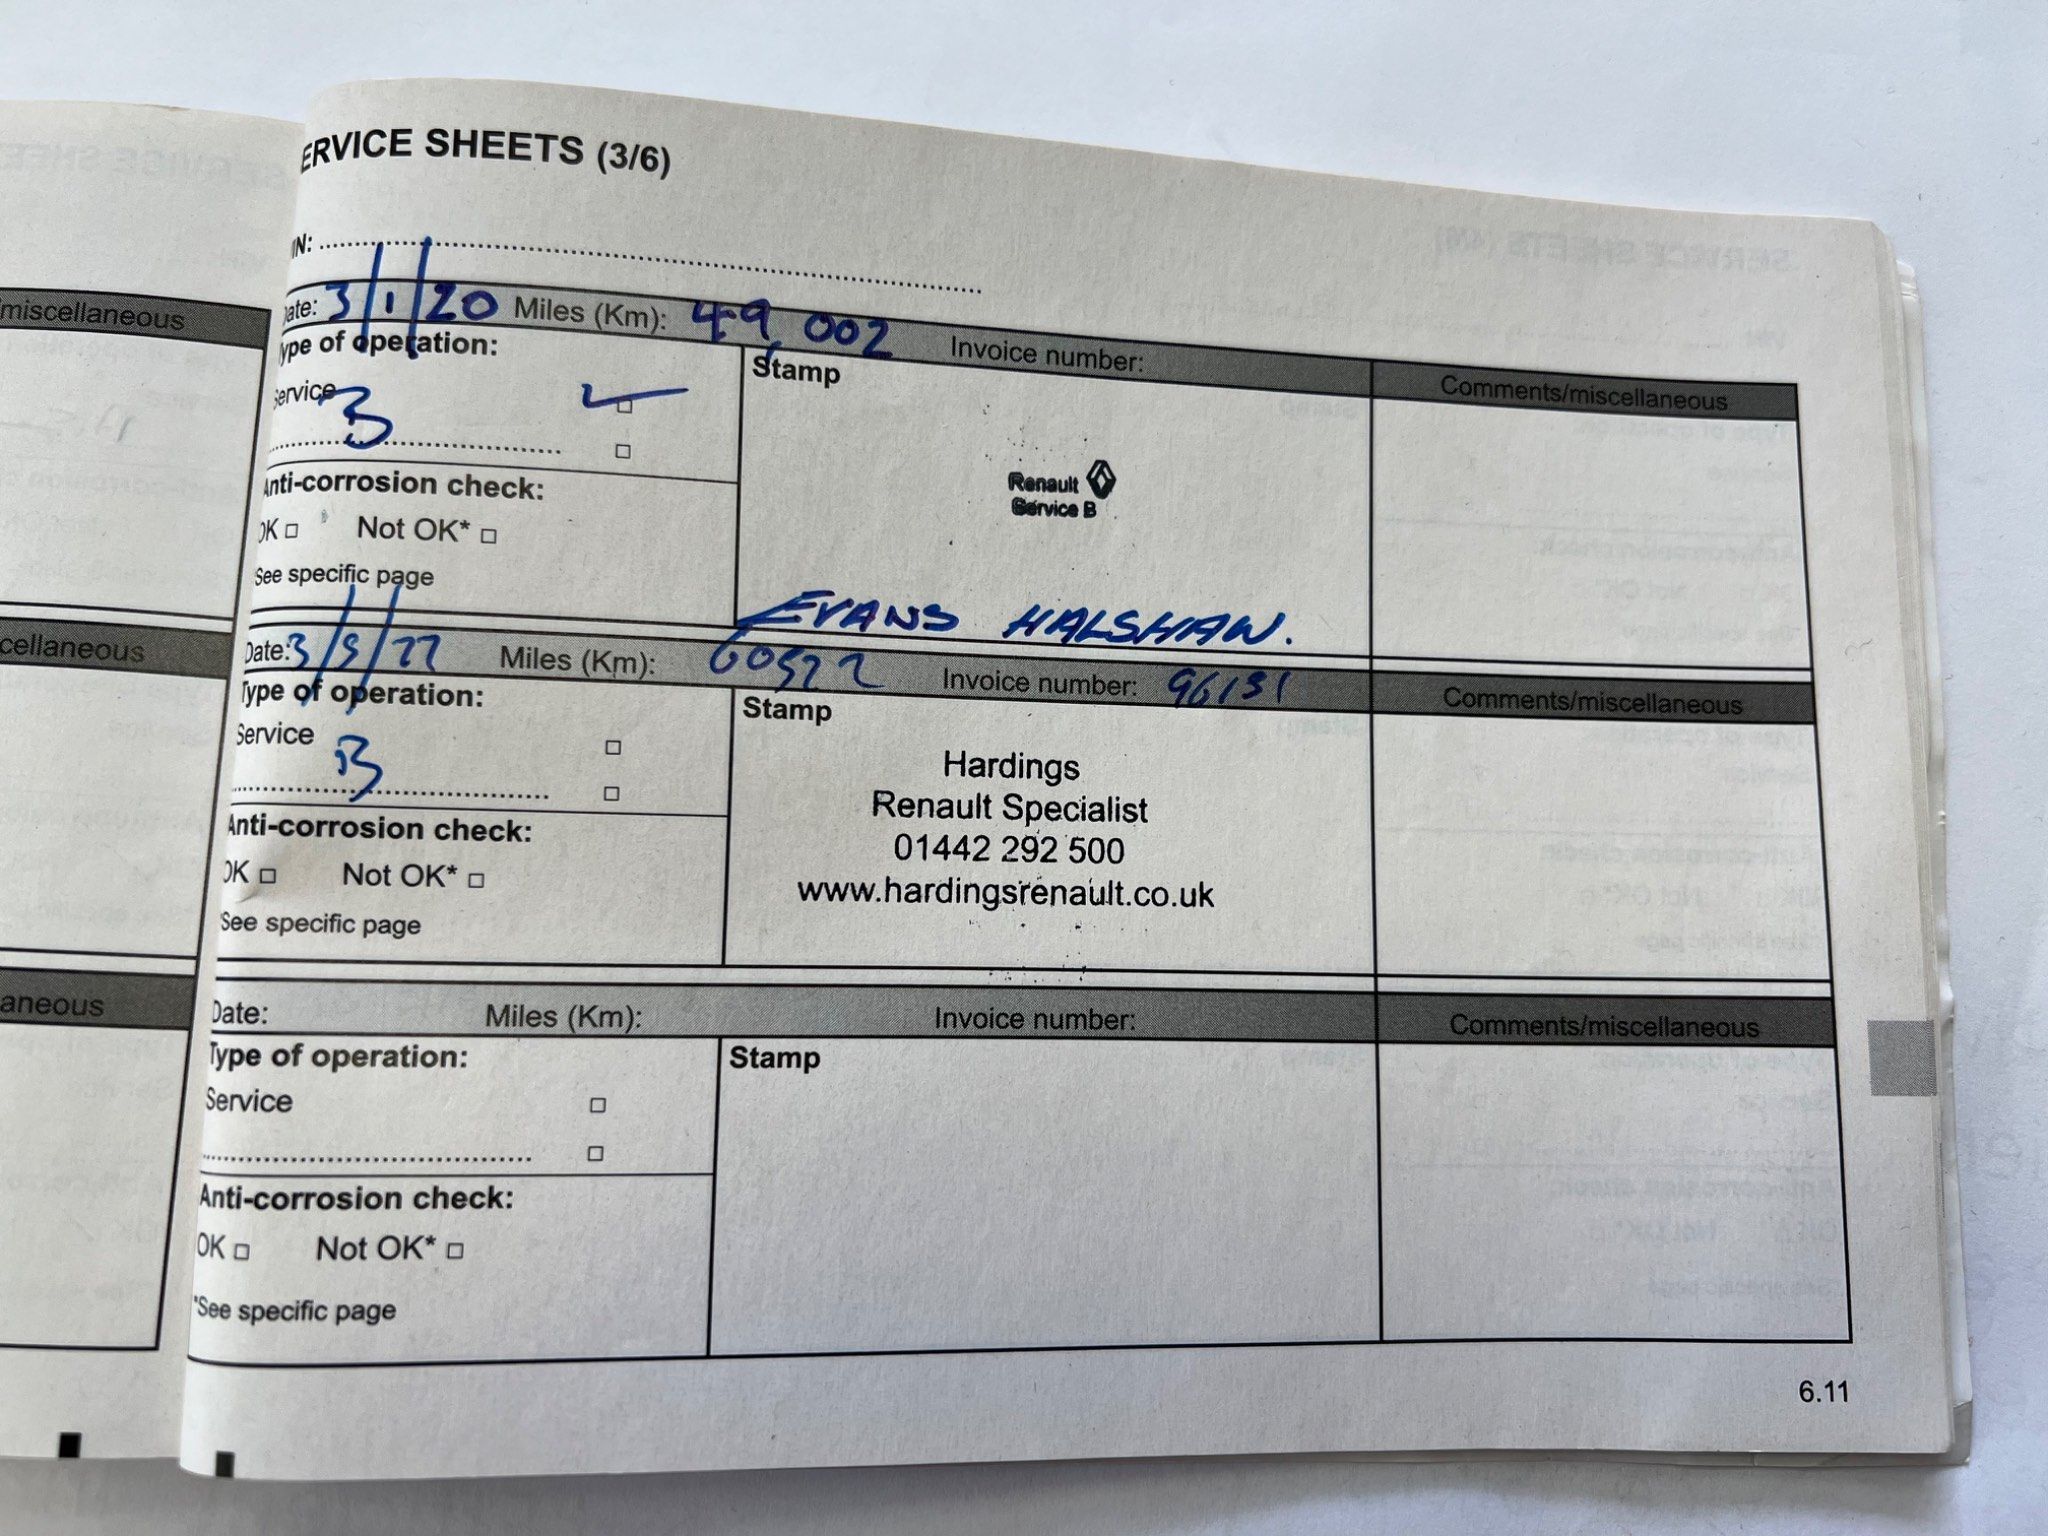 miscellaneous
cellaneous
aneous
ERVICE SHEETS (3/6)
IN:
Date: 3/1/20 Miles (Km): 49,002 Invoice number:
Comments/miscellaneous
Type of operation:
Service
B
Stamp
Renault
Service B
EVANS HALSHAW.
Anti-corrosion check:
OK Not OK*
*See specific page
Date: 3/5/22 Miles (Km): 60522 Invoice number: 96131
Comments/miscellaneous
Type of operation:
Service
B
Stamp
Hardings
Renault Specialist
01442 292 500
www.hardingsrenault.co.uk
Anti-corrosion check:
OK Not OK*
*See specific page
Date: Miles (Km): Invoice number:
Comments/miscellaneous
Type of operation:
Service
Stamp
Anti-corrosion check:
OK Not OK*
*See specific page
6.11